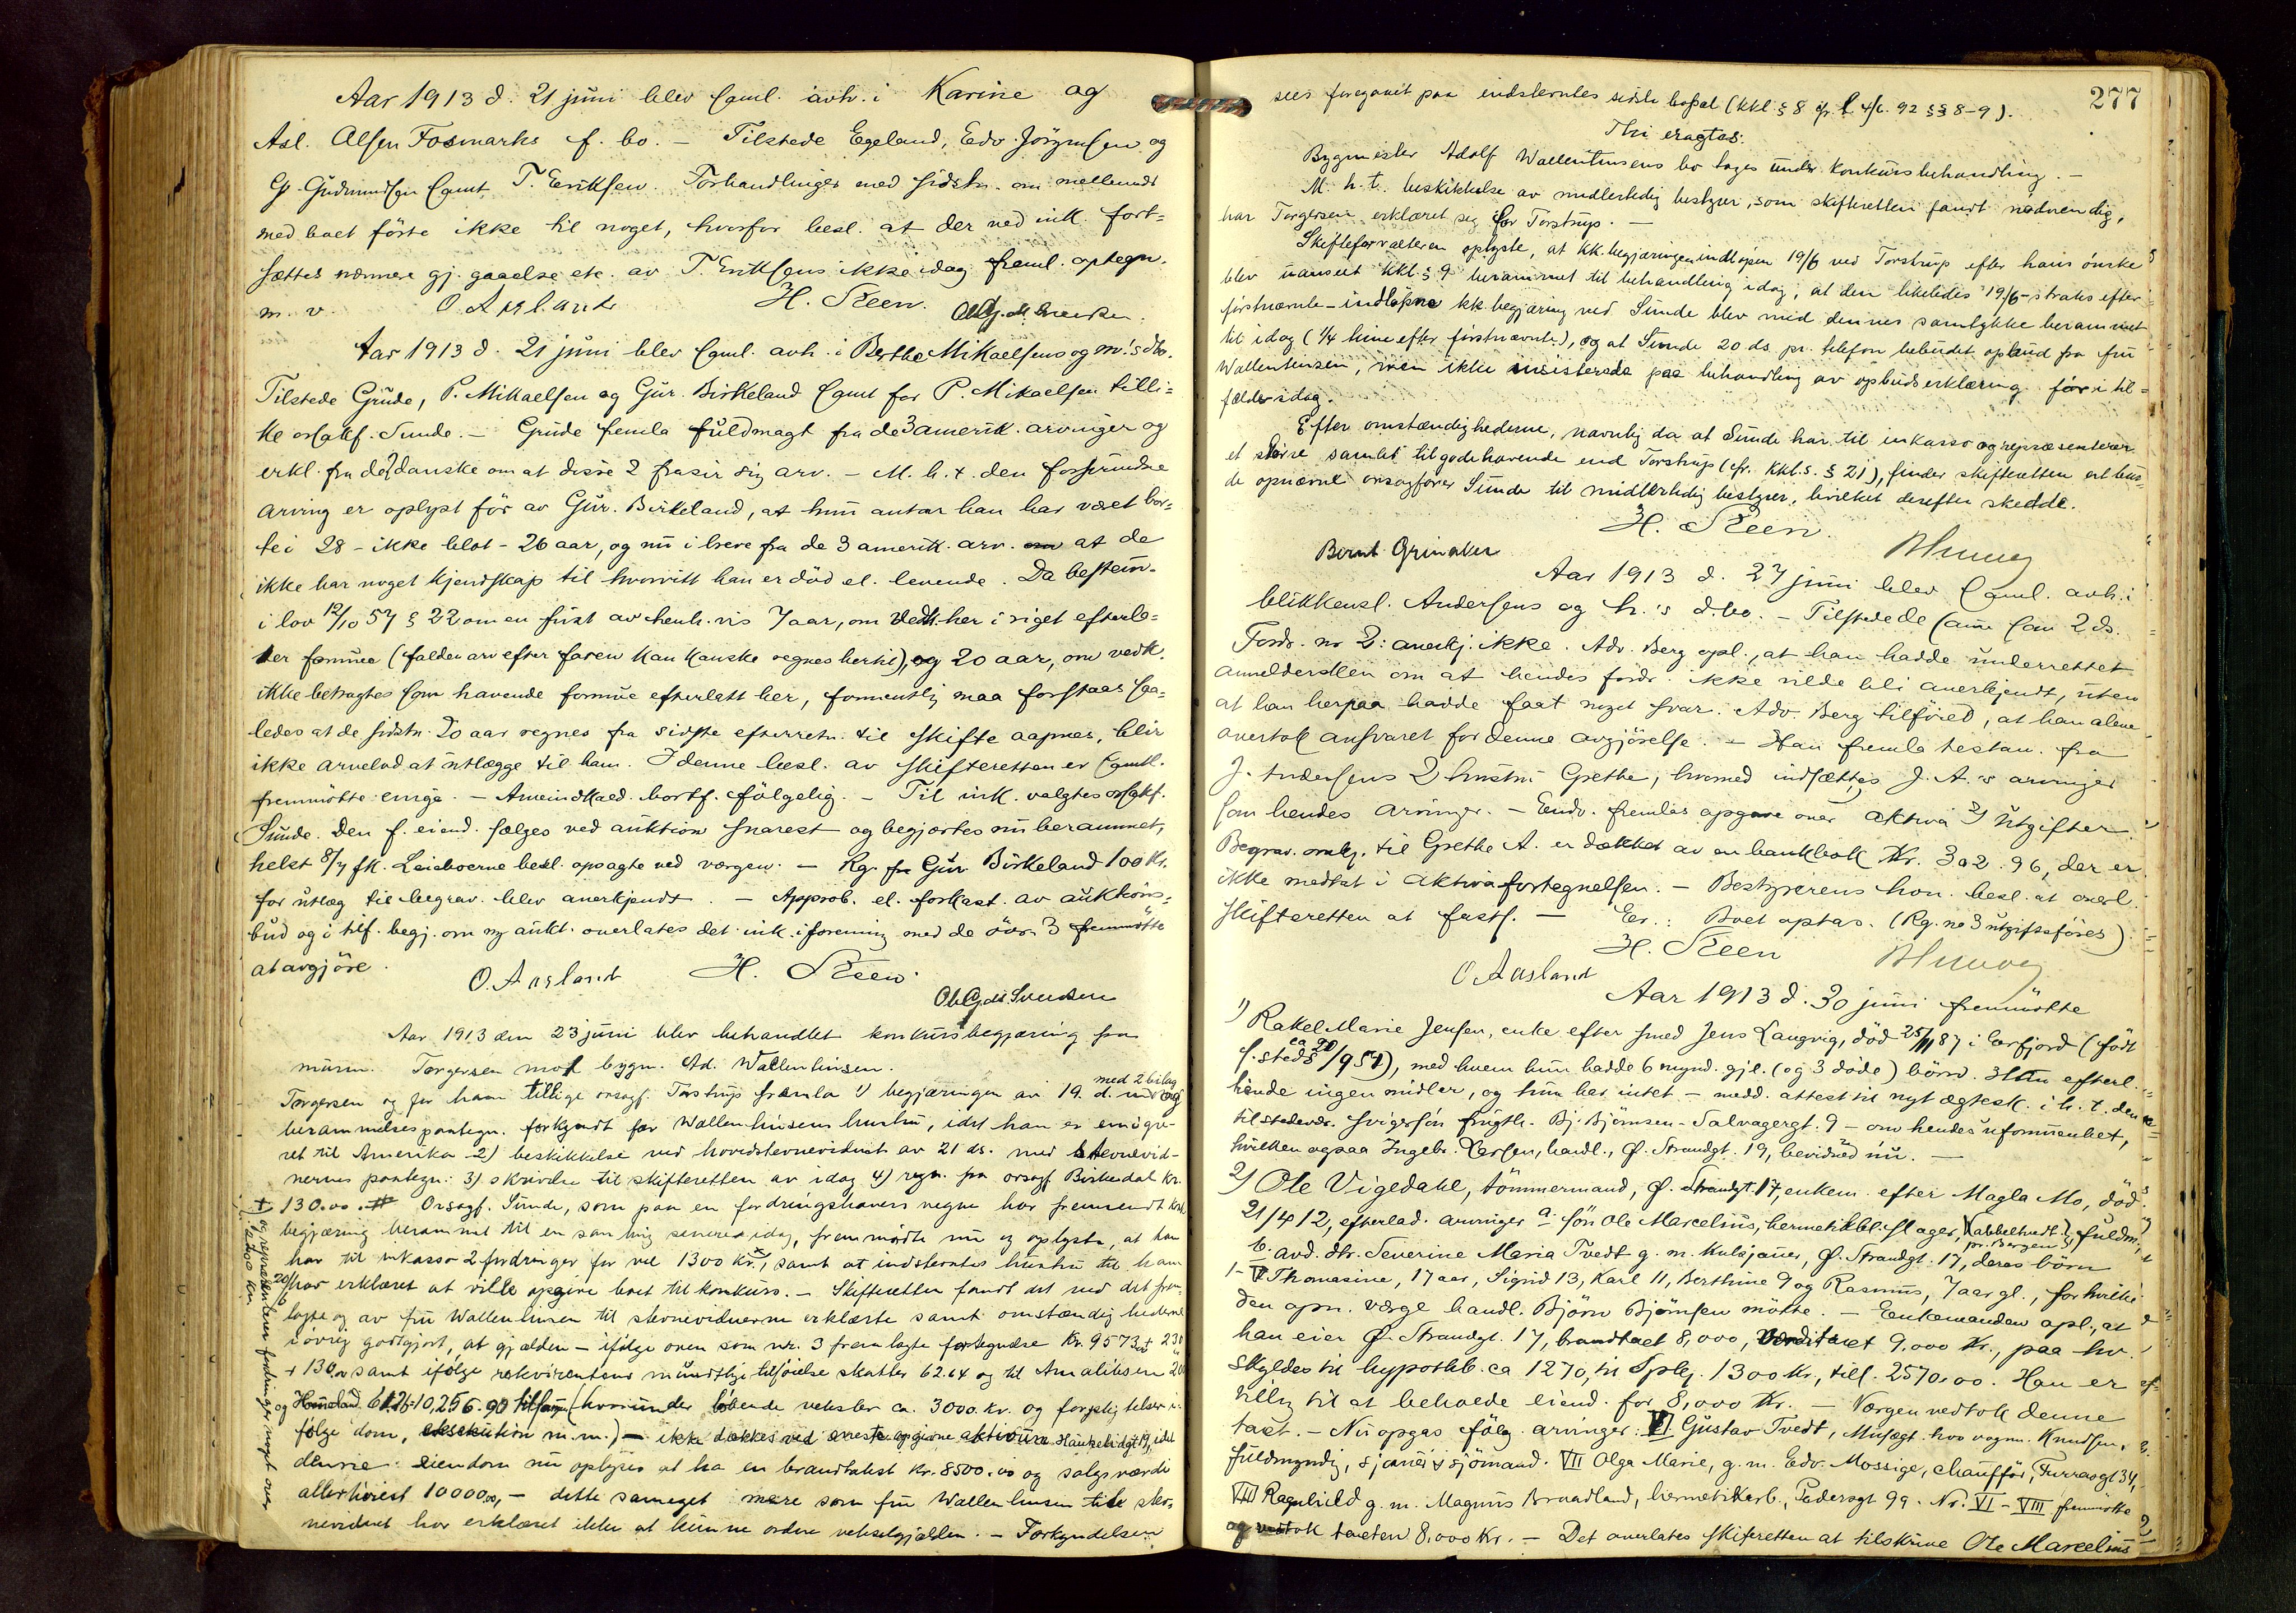 Aar 1913 d. 21 juni blev saml. avh. i Karine og
Asl. Olsen Fosmarks f. bo. – Tilstede Egeland, Edv. Jörgensen og
G. Gudmundsen samt T. Eriksen. Forhandlinger med sidstn. om mellemvær
med boet förte ikke til noget, hvorfor besl. at der ved ink. fort-
sættes nærmere gj. gaaelse etc. av T. Eriksens ikke idag freml. optegn.
m. v. O. Aasland H. Steen.
Aar 1913 d. 21 juni blev saml. avh. i Berthe Mikaelsens og m's dbo.
Tilstede Grude, P. Mikaelsen og Gur. Birkeland samt for P. Mikaelsen tilli-
ke o.sakf. Sunde. – Grude fremla fuldmagt fra de 3 amerik. arvinger og
erkl. fra de 2 danske om at disse 2 frasir sig arv. – M. h. t. den forsvundne
arving er oplyst för av Gur. Birkeland, at hun antar han har været bor-
te i 28 – ikke blot – 26 aar, og nu i breve fra de 3 amerik. arv. at de
ikke har noget kjendskap til hvorvitt han er död el. levende. Da bestem-
i lov 12/10 57 § 22 om en frist av henh.vis 7 aar, om vedk. her i riget efterla-
ter formue (falden arv efter faren kan kanske regnes hertil), og 20 aar, om vedk.
ikke betragtes som havende formue efterlatt her, formentlig maa forstaaes saa-
ledes at de sidstn. 20 aar regnes fra sidste efterretn. til skifte aapnes, blir
ikke arvelod at utlægge til ham. I denne besl. av skifteretten er samtl.
fremmötte enige. – Arveindkald. bortf. fölgelig. – Til ink. valgtes o.sakf.
Sunde. Den f. eiend. sælges ved auktion snarest og begjærtes nu berammet,
helst 8/7 fk. Leieboerne besl. opsagte ved værgen. – Rg. fra Gur. Birkeland 100 Kr.
for utlæg til begrav. blev anerkjendt. – Approb. el. forkast. av auktions-
bud og i tilf. begj. om ny aukt. overlates det ink. i forening med de övr. 3 fremmötte
at avgjöre.
O. Aasland H. Steen.
Aar 1913 den 23 juni blev behandlet konkursbegjæring fra
murm. Torgersen mot bygm. Ad. Wallentinsen.
Torgersen og for ham tillige orsagf. Torstrup fremla 1) begjæringen av 19. d. med 2 bilag og
berammelsespaategn. forkyndt for Wallentinsens hustru, idet han er emigre-
ret til Amerika 2) beskikkelse ved hovedstevnevidnet av 21 ds. med stevnevid-
nernes paategn. 3) skrivelse til skifteretten av idag 4) regn. fra orsagf Birkedal Kr.
130.00. Orsagf. Sunde, som paa en fordringshavers vegne har fremsendt kk
begjæring berammet til en samling senere idag, fremmödte nu og oplyste, at han
har til inkasso 2 fordringer for vel 1300 Kr., samt at indstevntes hustru til ham
20/6 har erklæret at ville opgive boet til konkurs. – Skifteretten fandt det ved det frem-
lagte og av fru Wallentinsen til stevnevidnerne erklærte samt omstændighederne
iövrig godtgjort, at gjælden – ifölge oven som nr. 3 fremlagte fortegnelse Kr. 9573
+ 130.00 samt ifölge rekvirentens mundtlige tilföielse skatter 62.64 og til Amaliksen
10,256.90 tilsam. (hvorunder löbende veksler ca. 3000 kr. og forskjellige i-
fölge dom, eksekution m.m.) – ikke dækkes ved eneste opgivne aktivum Haukeligt 19, idet
denne eiendom nu oplyses at ha en brandtakst kr. 8500.00 og salgsværdi
allerhöiest 10000,00, – dette saameget mere som fru Wallentinsen til stev-
nevidnet har erklæret ikke at kunne ordne vekselgjælden. – Forkyndelsen
+ og repræsenterer fordringer noget over
277
sees foregaaet paa indstevntes sidste bopæl (kkl. § 8 jfr. l 4/6. 92 §§ 8–9).
Thi eragtes:
Bygmester Adolf Wallentinsens bo tages under konkursbehandling. –
M. h. t. beskikkelse av midlertidig bestyrer, som skifteretten fandt nödvendig,
har Torgersen erklæret sig for Torstrup. –
Skifteforvalteren oplyste, at kk.begjæringen indlöpen 19/6 ved Torstrup efter hans önske
blev uanseet kkl. § 9 berammet til behandling idag, at den likeledes 19/6 – straks efter
förstnævnte – indlöpne kk.begjæring ved Sunde blev med dennes samtykke berammet
til idag (1/4 time efter förstnævnte), og at Sunde 20 ds. pr. telefon bebudet opbud fra fru
Wallentinsen, men ikke insisterede paa behandling av opbudserklæring för i til-
fælde idag.
Efter omstændighederne, navnlig da at Sunde har til inkasso og repræsenterer
et större samlet tilgodehavende end Torstrup (cfr. kkl.s. § 21), finder skifteretten at bur-
de opnævne orsagförer Sunde til midlertidig bestyrer, hvilket derefter skedde.
H. Steen.
Bernt Grinaker
Aar 1913 d. 27 juni blev saml. avh. i
blikkensl. Andersens og h.'s d.bo. – Tilstede de samme som 2 ds.
Fordr. no 2: anerkj. ikke. Adv. Berg opl., at han hadde underrettet
anmeldersken om at hendes fordr. ikke vilde bli anerkjendt, uten
at han herpaa hadde faat noget svar. Adv. Berg tilföied, at han alene
overtok ansvaret for denne avgjörelse. – Han fremla testam. fra
J. Andersens 2 hustru Grethe, hvorved indsættes J. A.'s arvinger
som hendes arvinger. – Endv. fremlas opgave over aktiva & utgifter.
Begrav. omk. til Grethe A. er dækket av en bankbok Kr. 302.96, der er
ikke medtat i aktivafortegnelsen. – Bestyrerens hon. besl. at overl.
skifteretten at fasts. – Eer.: Boet optas. (Rg. no 3 utgiftsföres)
H. Steen
O. Aasland
Aar 1913 d. 30 juni fremmötte
1) Rakel Marie Jensen, enke efter smed Jens Langvig, död 25/11 87 i Erfjord (födt
s. steds ca 20/9 57), med hvem hun hadde 6 mynd. gjl. (og 3 döde) börn. Han efterl.
hende ingen midler, og hun har intet – medd. attest til nyt ægtesk. i h. t. den
tilstedevr. svigersön frugth. Bj. Björnsen – Salvagergt. 9 – om hendes uformuenhet,
hvilken ogsaa Ingebr. Larsen, handl., Ø. Strandgt. 19, bevidned nu. –
2) Ole Vigedahl, tömmermand, Ø. Strandgt. 17, enkem. efter Magla Mo, död
21/4 12, efterlad. arvinger a. sön Ole Marcelius, hermetikbl.slager, Kabbelhvedt. pr. Bergen, fuldm.,
b. avd. dtr. Severine Maria Tvedt g. m. Kulsjauer, Ø. Strandgt. 17, deres börn
1–V Thomasine, 17 aar, Sigrid 13, Karl 11, Berthine 9 og Rasmus, 7 aar gl., for hvilke
den opn. værge handl. Björn Björnsen mötte. – Eenkemanden opl., at
han eier Ø. Strandgt. 17, brandtaet 8,000, værditaxt 9.000 Kr., paa hv.
skyldes til hypothb. ca 1270, til Spbk. 1300 Kr., tils. 2570.00. Han er
villig til at beholde eiend. for 8,000 Kr. – Værgen vedtok denne
taxt. – Nu opgas fölg. arvinger: VI Gustav Tvedt, Musegt. hos vognm. Knudsen,
fuldmyndig, sjauer & sjömand. VII Olga Marie, g. m. Edv. Mossige, chaufför, Furrasgt 34,
VIII Ragnhild g. m. Magnus Braadland, hermetikarb., Pedersgt 99. Nr. VI – VIII fremmötte
og vedtok taxten 8,000 Kr. – Det overlates skifteretten at tilskrive Ole Marcelius